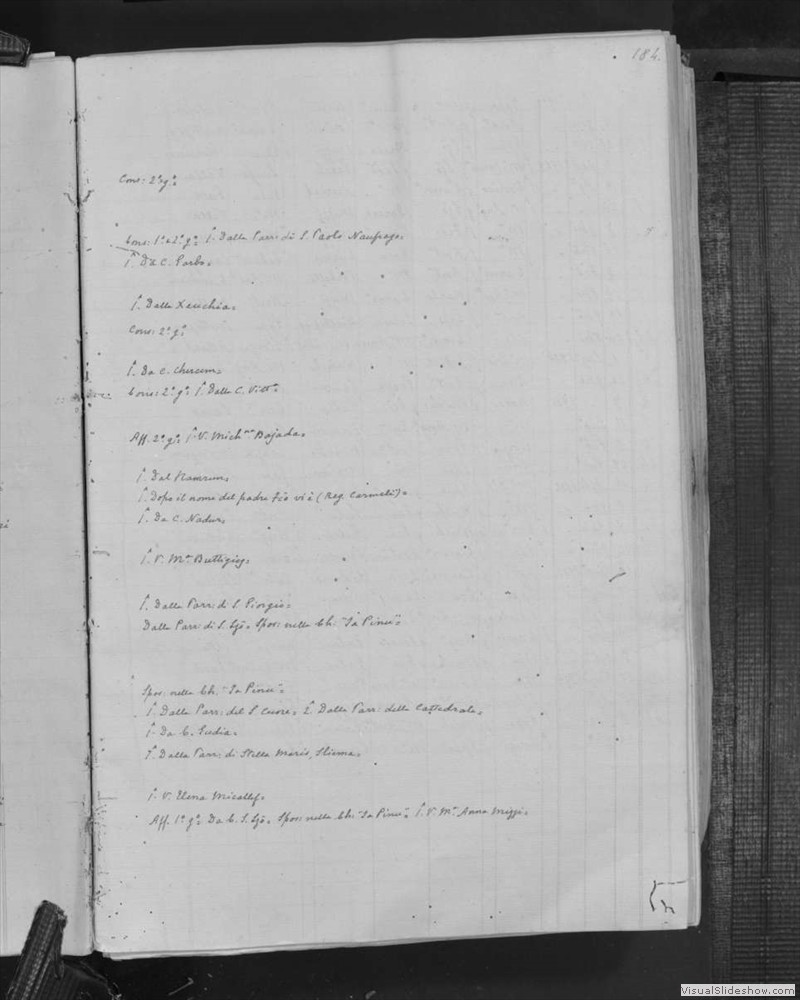 184.
Cons: 2º gº
Cons: 1º e 2º gº 1º. Dalla Parr: di S. Paolo Naufrago.
1ª. Da C. Garbo.
1º. Dalla Xeuchia.
Cons: 2º gº
1º. Da C. Chercem.
Cons: 2º gº 1º. Dalla C. Vittª
Aff. 2º gº 1º. V. Mich. Bajada.
1º. Dal Hamrun.
1º. Dopo il nome del padre vi è (Reg. Carmelì).
1º. Da C. Nadur.
1º. V. Mª Buttigieg.
1º. Dalla Parr: di S. Giorgio.
Dalla Parr: di S. Lzº. Spos: nella Ch. "Ta Pinu".
Spos: nella Ch. "Ta Pinu".
1º. Dalla Parr: del S. Cuore. 2º. Dalla Parr: della Cattedrale.
1º. Da C. Sudia.
1º. Dalla Parr: di Stella Maris, Sliema.
1º. V. Elena Micallef.
Aff. 1º gº. Da C. S. Lzº. Spos: nella Ch. "Ta Pinu". 1º. V. Mª Anna Mizzi.
VisualSlideshow.com